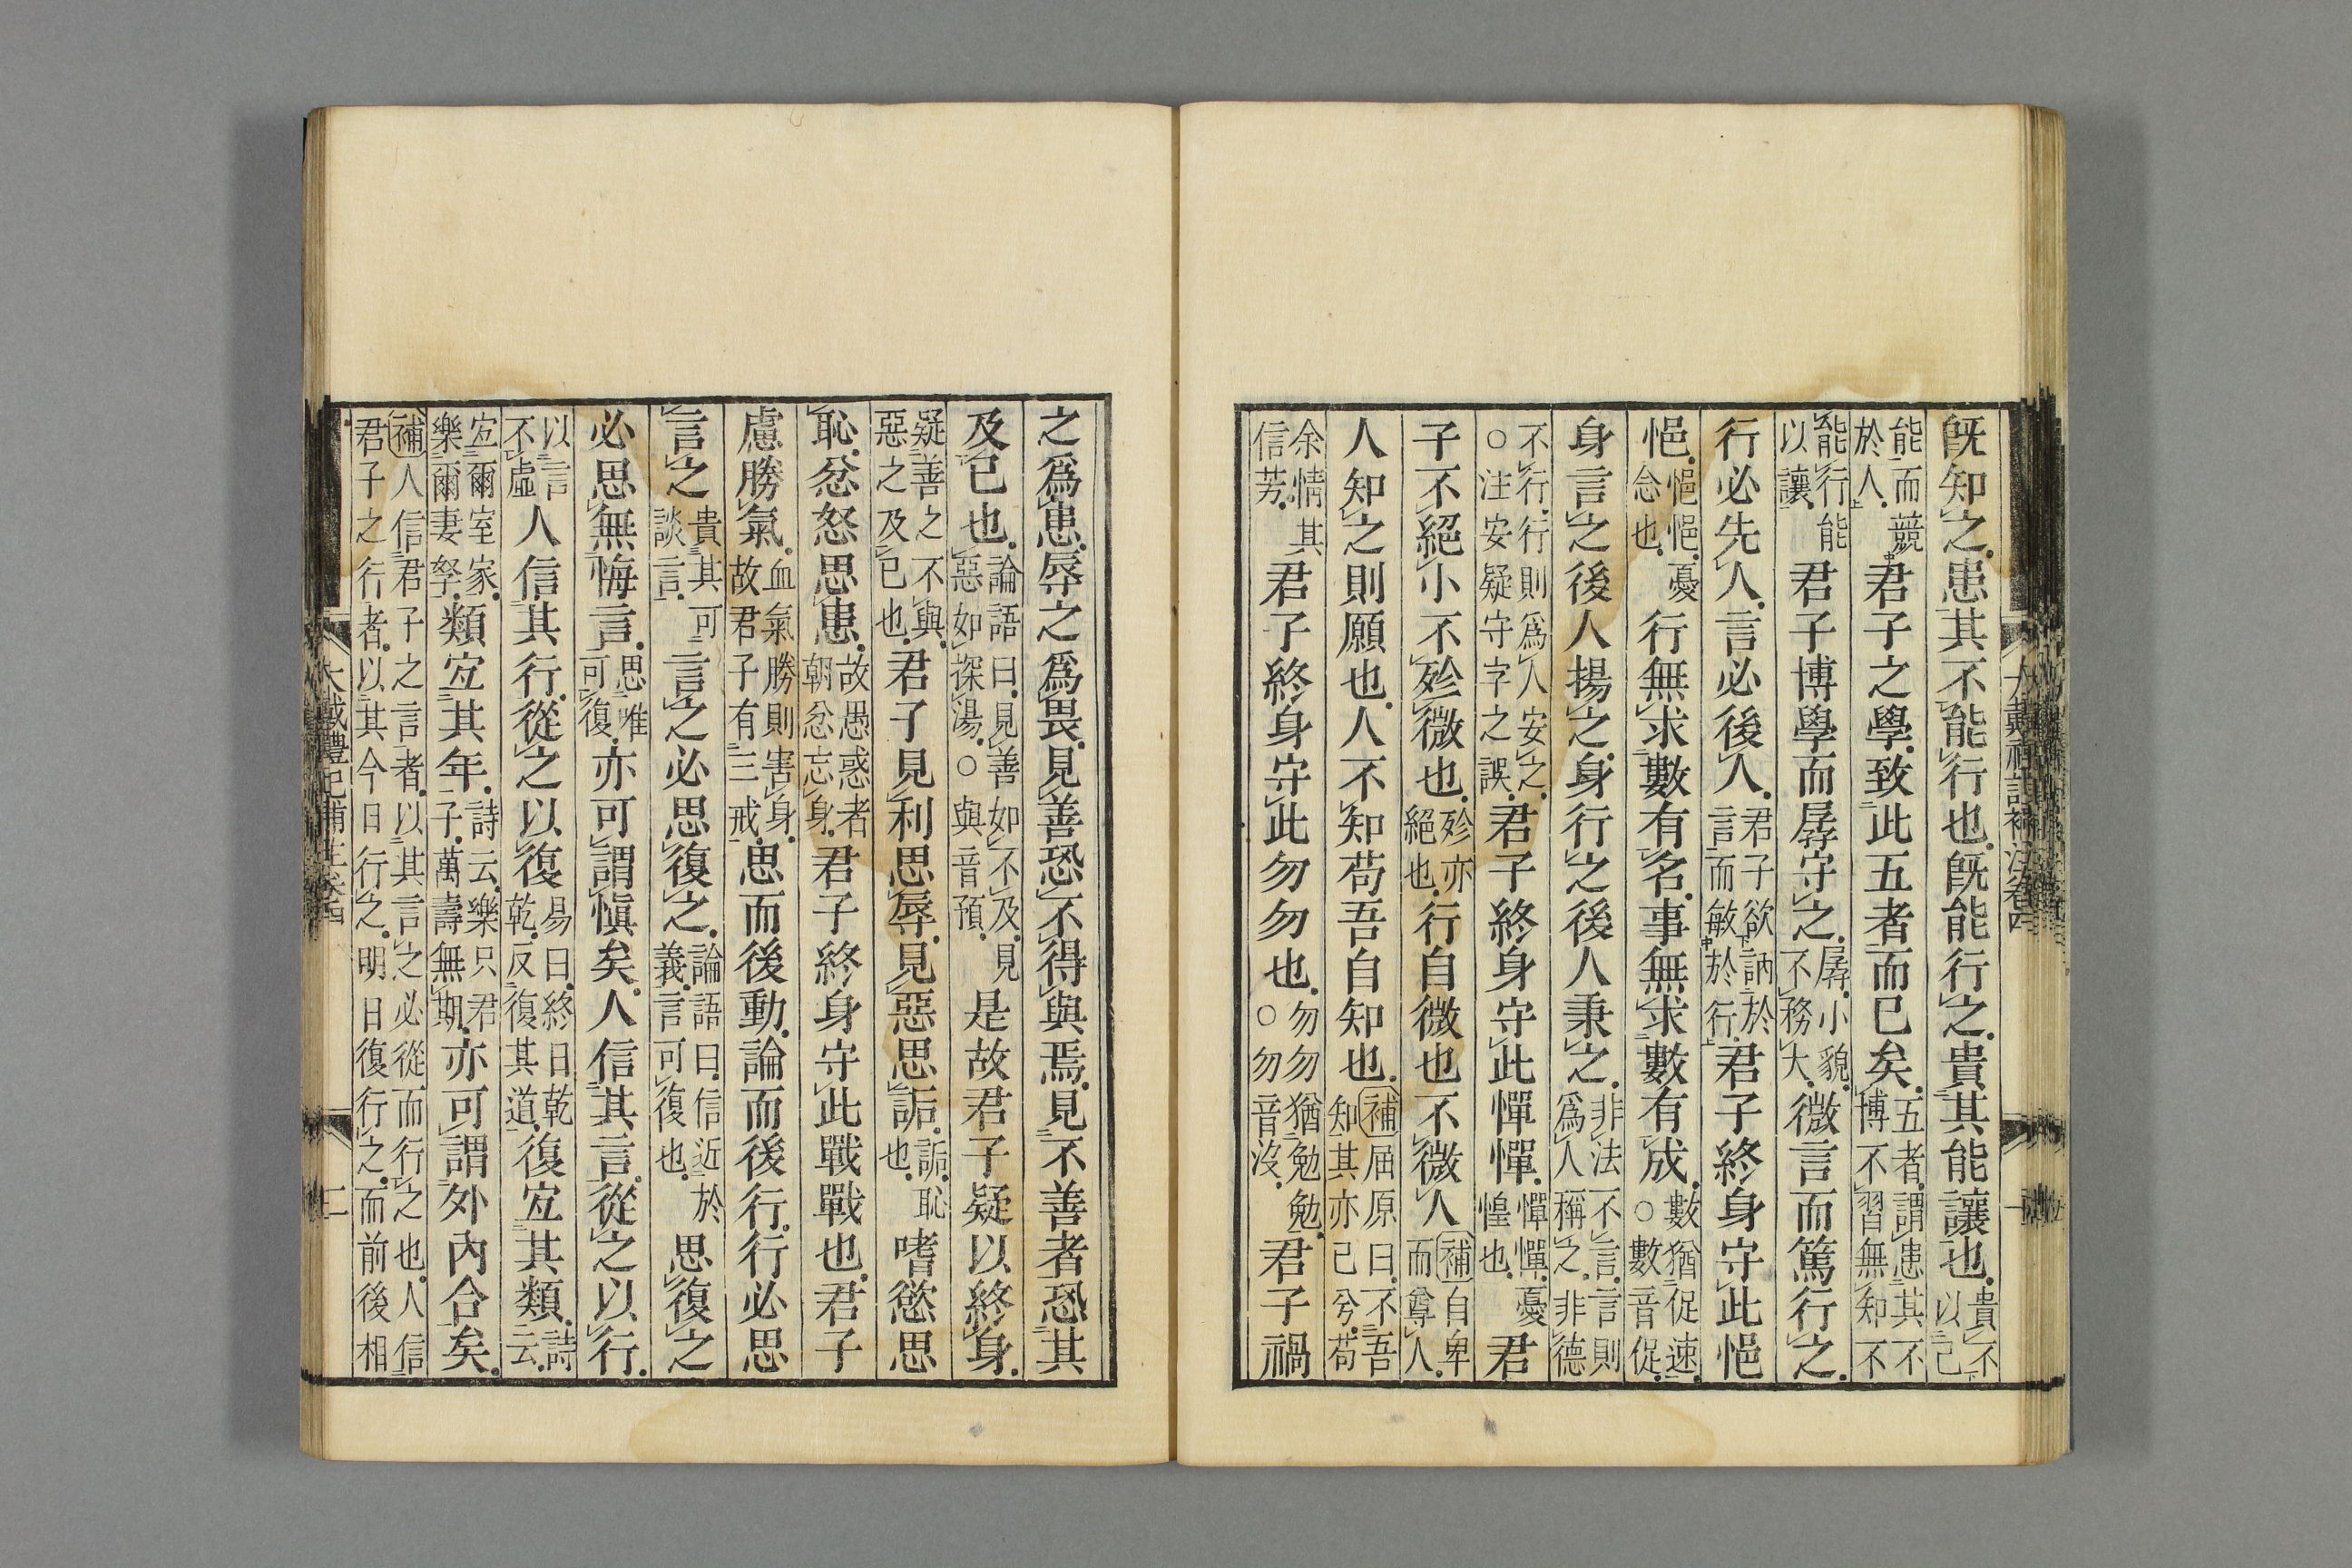 既知之。患其不能行也。既能行之。貴其能讓也。貴不以己
能而競於人。君子之學。致此五者而已矣。五者。謂患其不博不習無知不
能行能以讓。君子博學而孱守之。孱。小貌。不務大。微言而篤行之。
行必先人。言必後人。君子欲訥於言而敏於行。君子終身守此悒
悒。悒悒。憂念也。行無求數有名。事無求數有成。數猶促速。○數音促。
身言之。後人揚之。身行之。後人秉之。非法不言。言則爲人稱之。非德
不行。行則爲人安之。○注安疑守字之誤。君子終身守此憚憚。憚憚。憂惶也。君
子不絕小。不殄微也。殄亦絕也。行自微也不微人補自卑而尊人。
人知之則願也。人不知苟吾自知也。補屈原曰。不吾知其亦已兮。苟
余情其信芳。君子終身守此勿勿也。勿勿猶勉勉。○勿音沒。君子禍
之爲患。辱之爲畏。見善恐不得與焉。見不善者恐其
及己也。論語曰。見善如不及。見惡如探湯。○與音預。是故君子疑以終身。
疑善之不與。惡之及己也。君子見利思辱。見惡思詬。詬。恥也。嗜慾思
恥。忿怒思患。故愚惑者朝忿忘身。君子終身守此戰戰也。君子
慮勝氣。血氣勝則害身。故君子有三戒。思而後動。論而後行。行必思
言之貴其可談言。言之必思復之。論語曰。信近於義。言可復也。思復之
必思無悔言。思唯可復。亦可謂愼矣。人信其言。從之以行。
以言不虛人信其行。從之以復易曰。終日乾乾。反復其道。復宐其類。詩云。
宐爾室家。樂爾妻孥。類宐其年。詩云。樂只君子。萬壽無期。亦可謂外內合矣。
補人信君子之言者。以其言之必從而行之也。人信君子之行者。以其今日行之。明日復行之。而前後相
大戴禮記補注卷四
二